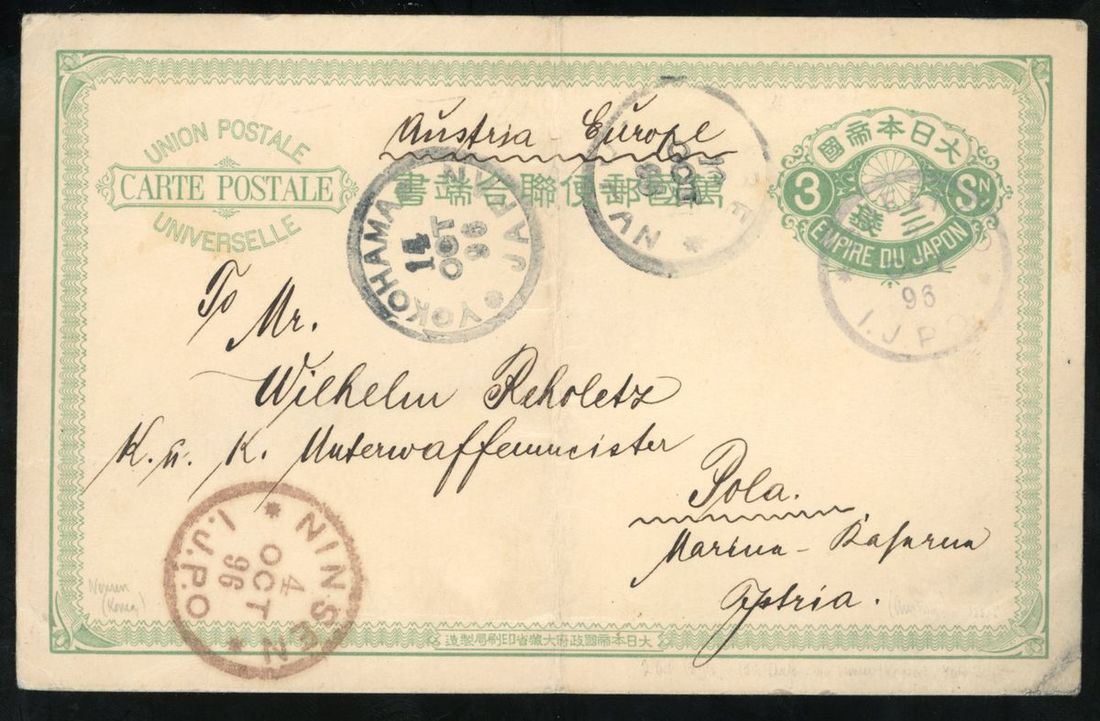 UNION POSTALE
CARTE POSTALE
UNIVERSELLE
Austria Europe
書端合聯便郵國萬
大日本帝國
3 Sn
三錢
EMPIRE DU JAPON
YOKOHAMA JAPAN
14
OCT
96
OCT
96
I.J.P.O
To Mr.
Wilhelm Reholetz
K. u. K. Unterwaffenmeister
Pola.
Marine-Kaserne
Istria.
NINSEN
4
OCT
96
I.J.P.O
(Korea)
造製局刷印省藏大府政國帝本日大